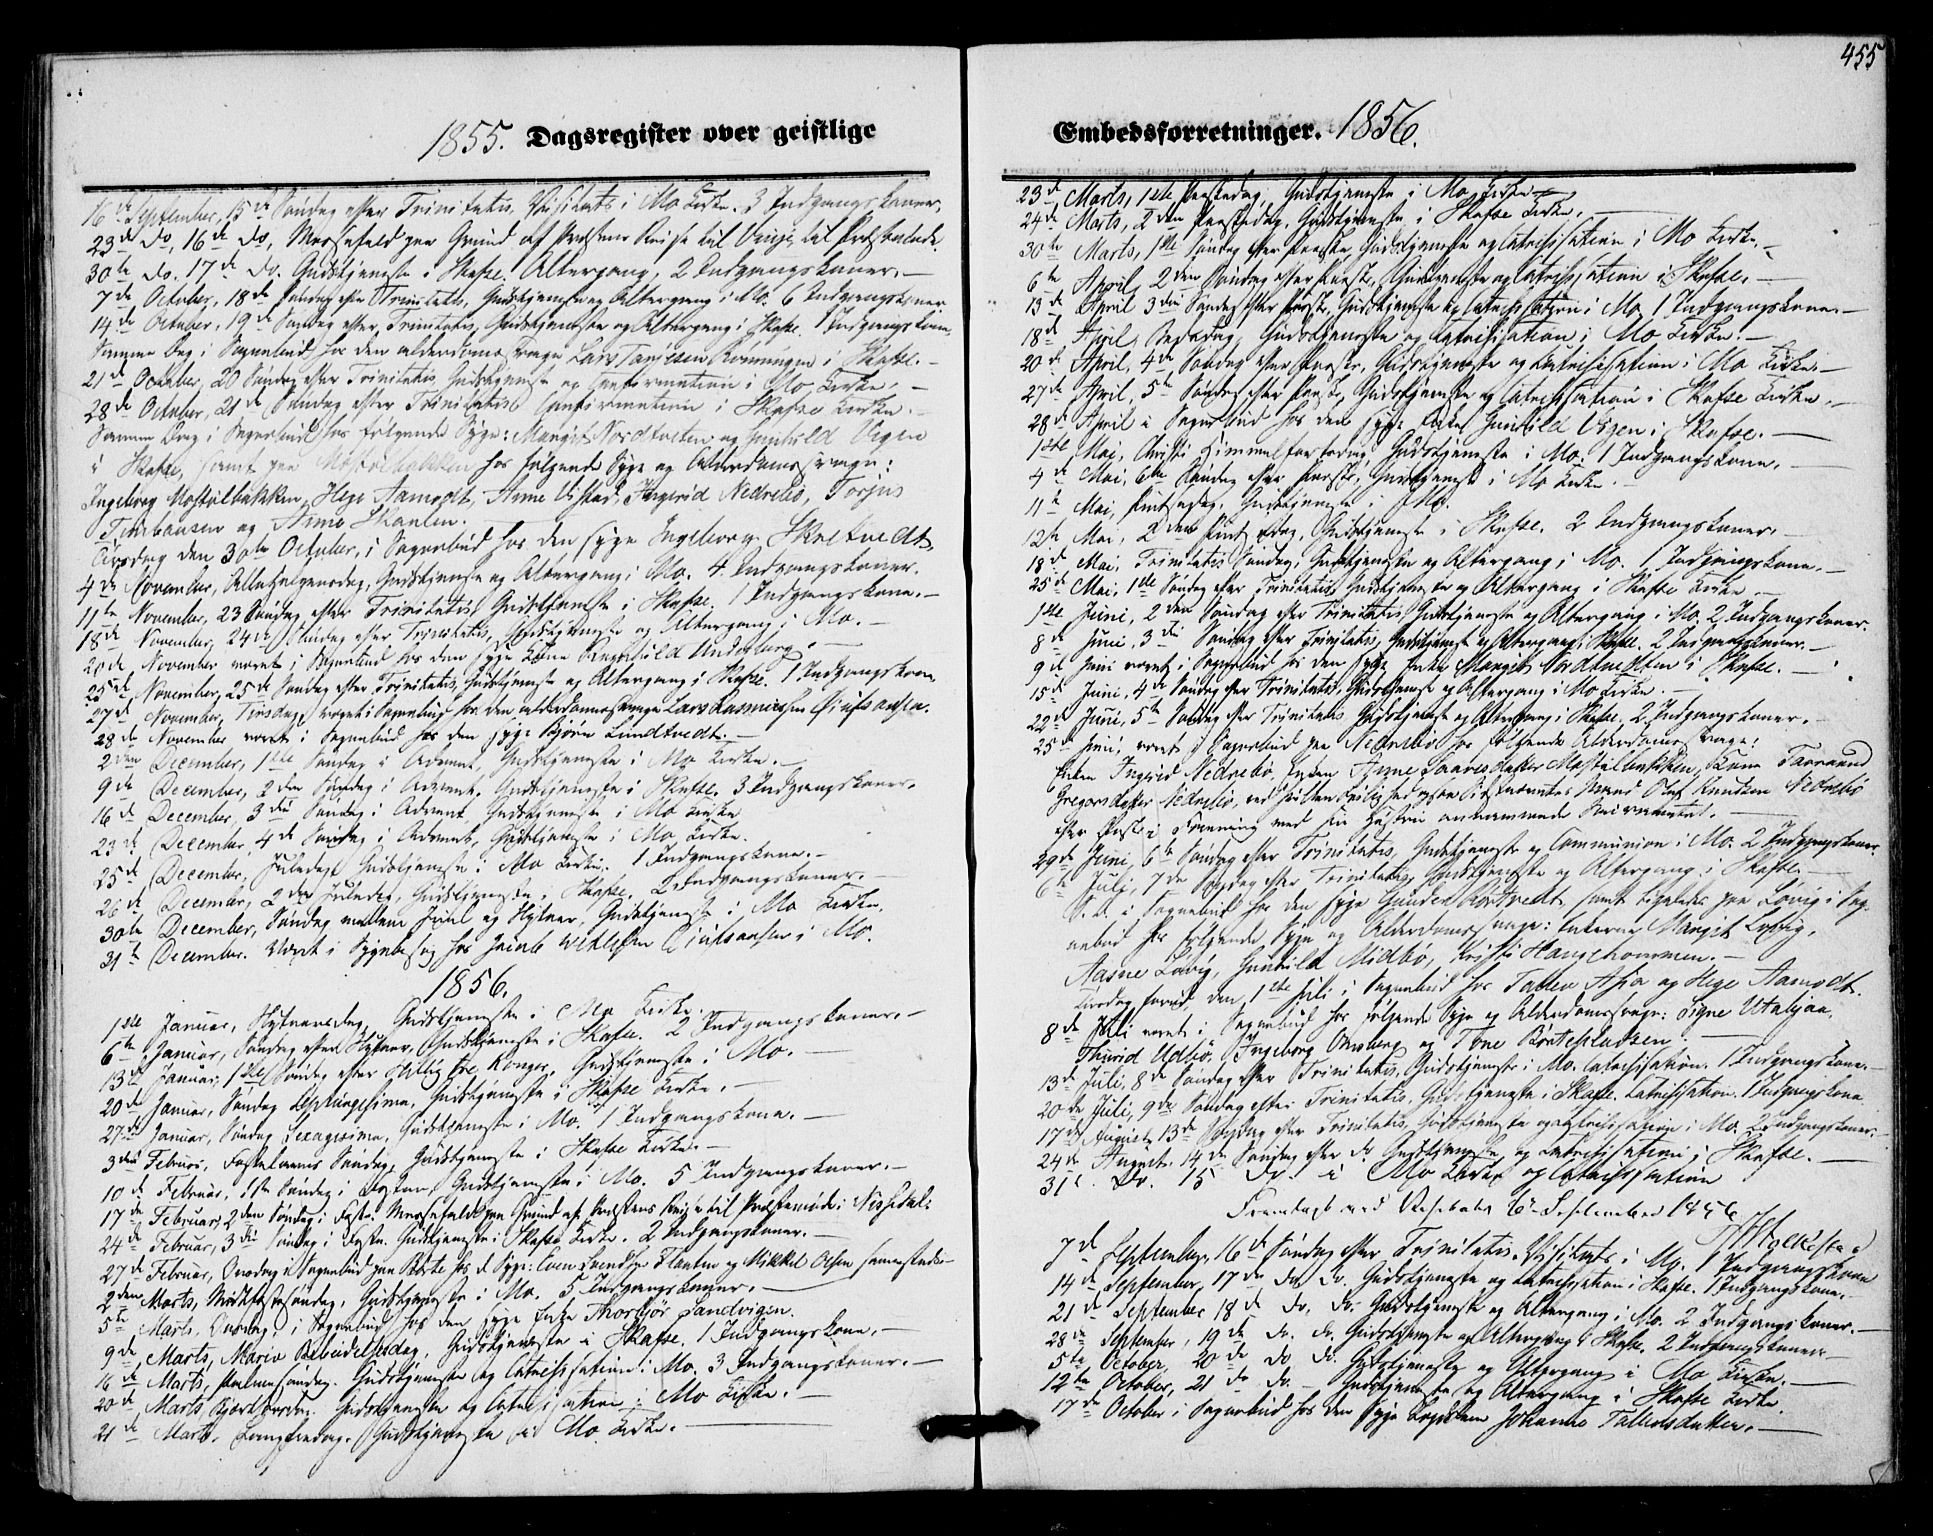 455
1855. Dagsregister over geistlige
16de September, 15de Søndag efter Trinitatis, Visitats i Mo Kirke. 3 Indgangskoner.
23de Do, 16de Do, Messefald paa Grund af Præstens Reise til Vinje
30te Do. 17de Do. Gudstjeneste i Skafse. Altergang, 2 Indgangskoner.
7de October, 18de Søndag efter Trinitatis, Gudstjeneste og Altergang i Mo. 6 Indgangskoner
14de October, 19de Søndag efter Trinitatis, Gudstjeneste og Altergang i Skafse. 1 Indgangskone.
Samme Dag i Sognebud hos den alderdomssvage Lars Tarjesen Rönningen i Skafse.
21de October, 20 Søndag efter Trinitatis Gudstjeneste og Confirmation i Mo Kirke.
28de October, 21de Søndag efter Trinitatis Confirmation i Skafse Kirke.
Samme Dag i Sognebud hos følgende Syge: Margit Nordtveten og Gunhild Vegen
i Skafse, samt paa Mostølbakken hos følgende Syge og Alderdomssvage:
Ingeborg Mostølbakken, Hege Aamodt, Anne Nedrebö, Torjus
og Anne Skanten.
Tirsdag den 30te October, i Sognebud hos den syge Ingeborg Skretvedt.
4de November, Allehelgensdag, Gudstjeneste og Altergang i Mo. 4 Indgangskoner.
11te November, 23 Søndag efter Trinitatis Gudstjeneste i Skafse. 1 Indgangskone.
18de November, 24de Søndag efter Trinitatis, Gudstjeneste og Altergang i Mo.
20de November været i Sognebud hos den syge Kone Gunhild Underberg.
25de November, 25de Søndag efter Trinitatis, Gudstjeneste og Altergang i Skafse. 1 Indgangskone
27de November, Tirsdag, været i Sognebud hos den alderdomssvage Lars Rasmussen
28de November været i Sognebud hos den syge Bjørn Lundtvedt.
2den December, 1ste Søndag i Advent, Gudstjeneste i Mo Kirke.
9de December, 2den Søndag i Advent, Gudstjeneste i Skafse. 3 Indgangskoner.
16de December, 3die Søndag i Advent, Gudstjeneste i Mo Kirke
23de December, 4de Søndag i Advent, Gudstjeneste i Mo Kirke.
25de December, Juledag Gudstjeneste i Mo Kirke. 1 Indgangskone.
26de December, 2den Juledag, Gudstjeneste i Skafse, 2 Indgangskoner.
30te December, Søndag mellem Juul og Nytaar, Gudstjeneste i Mo Kirke.
31te December. Været i Sygebesøg hos Jacob i Mo.
1856.
1ste Januar, Nytaarsdag, Gudstjeneste i Mo Kirke.
6te Januar, Søndag efter Nytaar, Gudstjeneste i Skafse. 2 Indgangskoner.
13de Januar, 1ste Søndag efter Hellig tre Konger, Gudstjeneste i Mo.
20de Januar, Søndag Septuagesima, Gudstjeneste i Skafse Kirke.
27de Januar, Søndag Sexagesima, Gudstjeneste i Mo. 1 Indgangskone.
3die Februar, Fastelavns Søndag, Gudstjeneste i Skafse Kirke.
10de Februar, 1ste Søndag i Fasten, Gudstjeneste i Mo. 5 Indgangskoner.
17de Februar, 2den Søndag i Faste. Messefald paa Grund af Præstens Reise til Præstemøde i Nissedal.
24de Februar, 3die Søndag i Faste. Gudstjeneste i Skafse Kirke. 2 Indgangskoner.
27de Februar, Onsdag i Sognebud paa Børte hos d. Syge: Sveen Svendsen og Mikkel Olsen sammesteds
2den Marts, Midfastesøndag, Gudstjeneste i Mo. 5 Indgangskoner.
5te Marts, Onsdag, i Sognebud hos den syge Enke Thorbjör Sandvigen.
9de Marts, Mariæ Bebudelsesdag, Gudstjeneste i Skafse. 1 Indgangskone.
16de Marts, Palmesøndag. Gudstjeneste og Catechisation i Mo, 3 Indgangskoner.
20de Marts, Skjærtorsdag. Gudstjeneste og Catechisation i Mo Kirke.
21de Marts, Langfredag. Gudstjeneste i Mo Kirke.
Embedsforretninger. 1856.
23de Marts, 1ste Paaskedag, Gudstjeneste i Mo Kirke.
24de Marts, 2den Paaskedag, Gudstjeneste i Skafse Kirke.
30te Marts, 1ste Søndag efter Paaske, Gudstjeneste og Catechisation i Mo Kirke.
6te April, 2den Søndag efter Paaske, Gudstjeneste og Catechisation i Skafse.
13de April 3die Søndag efter Paaske, Gudstjeneste og Catechisation i Mo. 1 Indgangskone.
18de April, Bededag, Gudstjeneste og Catechisation i Mo Kirke.
20de April, 4de Søndag efter Paaske, Gudstjeneste og Catechisation i Mo Kirke.
27de April, 5te Søndag efter Paaske, Gudstjeneste og Catechisation i Skafse Kirke.
28de April i Sognebud hos den syge Enke Gunhild Vegen i Skafse.
1ste Mai, Christi Himmelfartsdag, Gudstjeneste i Mo. 1 Indgangskone.
4de Mai, 6te Søndag efter Paaske, Gudstjeneste i Mo Kirke.
11te Mai, Pintsedag, Gudstjeneste i Mo.
12te Mai, 2den Pintsedag, Gudstjeneste i Skafse. 2 Indgangskoner.
18de Mai, Trinitatis Søndag, Gudstjeneste og Altergang i Mo. 1 Indgangskone.
25de Mai, 1ste Søndag efter Trinitatis, Gudstjeneste og Altergang i Skafse Kirke.
1ste Juni, 2den Søndag efter Trinitatis Gudstjeneste og Altergang i Mo. 2 Indgangskoner.
8de Juni, 3die Søndag efter Trinitatis, Gudstjeneste og Altergang i Skafse. 2 Indgangskoner.
9de Juni været i Sognebud hos den syge Enke Margit Nordtveten i Skafse.
15de Juni, 4de Søndag efter Trinitatis, Gudstjeneste og Altergang i Mo Kirke.
22de Juni, 5te Søndag efter Trinitatis Gudstjeneste og Altergang i Skafse. 2 Indgangskoner.
25de Juni, været i Sognebud paa Nedrebö hos følgende Alderdomssvage:
Enken Ingerid Nedrebö, Enken Anne Saavesdatter Mostølbakken, Kone Taaraand
Gregarsdatter Nedrebö, ved hvilken Leilighed ogsaa Sidstnævntes Mand Olaf Knudsen Nedrebö
efter i Forening med sin Hustru annammede Sacramentet.
29de Juni, 6te Søndag efter Trinitatis, Gudstjeneste og Communion i Mo. 2 Indgangskoner.
6te Juli, 7de Søndag efter Trinitatis Gudstjeneste og Altergang i Skafse.
S. D. i Sognebud hos den syge Gunder Röstvedt, samt ligeledes paa Lövig i Sog-
nebud hos følgende Syge og Alderdomssvage: Enkerne Margit Lövig,
Aasne Lövig, Gunhild Midbö, Kristi Haugehommen.
Tirsdag forud, den 1ste Juli i Sognebud hos Tallev Asia og Hege Aamodt.
8de Juli været i Sognebud hos følgende Syge og Alderdomssvage: Signe Utabjaa,
Thurid Udbö, Ingeborg Omberg og Tone Börtepladsen.
13de Juli, 8de Søndag efter Trinitatis, Gudstjeneste i Mo. Catechisation. 1 Indgangskone.
20de Juli, 9de Søndag efter Trinitatis, Gudstjeneste i Skafse. Catechisation. 1 Indgangskone
17de August, 13de Søndag efter Trinitatis, Gudstjeneste og Catechisation i Mo. 2 Indgangskoner.
24de August, 14de Søndag efter do Gudstjeneste og Catechisation i Skafse.
31te Do. 15 Do. i Mo Kirke og Catechisation
Fremlagt ved Visitats 6te September 1856
7de September, 16de Søndag efter Trinitatis. Visitats i Mo. 1 Indgangskone
14de September, 17de Do. Do. Gudstjeneste og Catechisation i Skafse. 1 Indgangskone.
21de September 18de Do. Do. Gudstjeneste og Altergang i Mo. 2 Indgangskoner.
28de September, 19de Do. Do. Gudstjeneste og Altergang i Skafse. 2 Indgangskoner.
5te October, 20de Do Do. Gudstjeneste og Altergang i Mo Kirke.
12te October, 21de Do. Gudstjeneste og Altergang i Skafse Kirke.
17de October i Sognebud hos den syge Johanne Tallevsdatter.